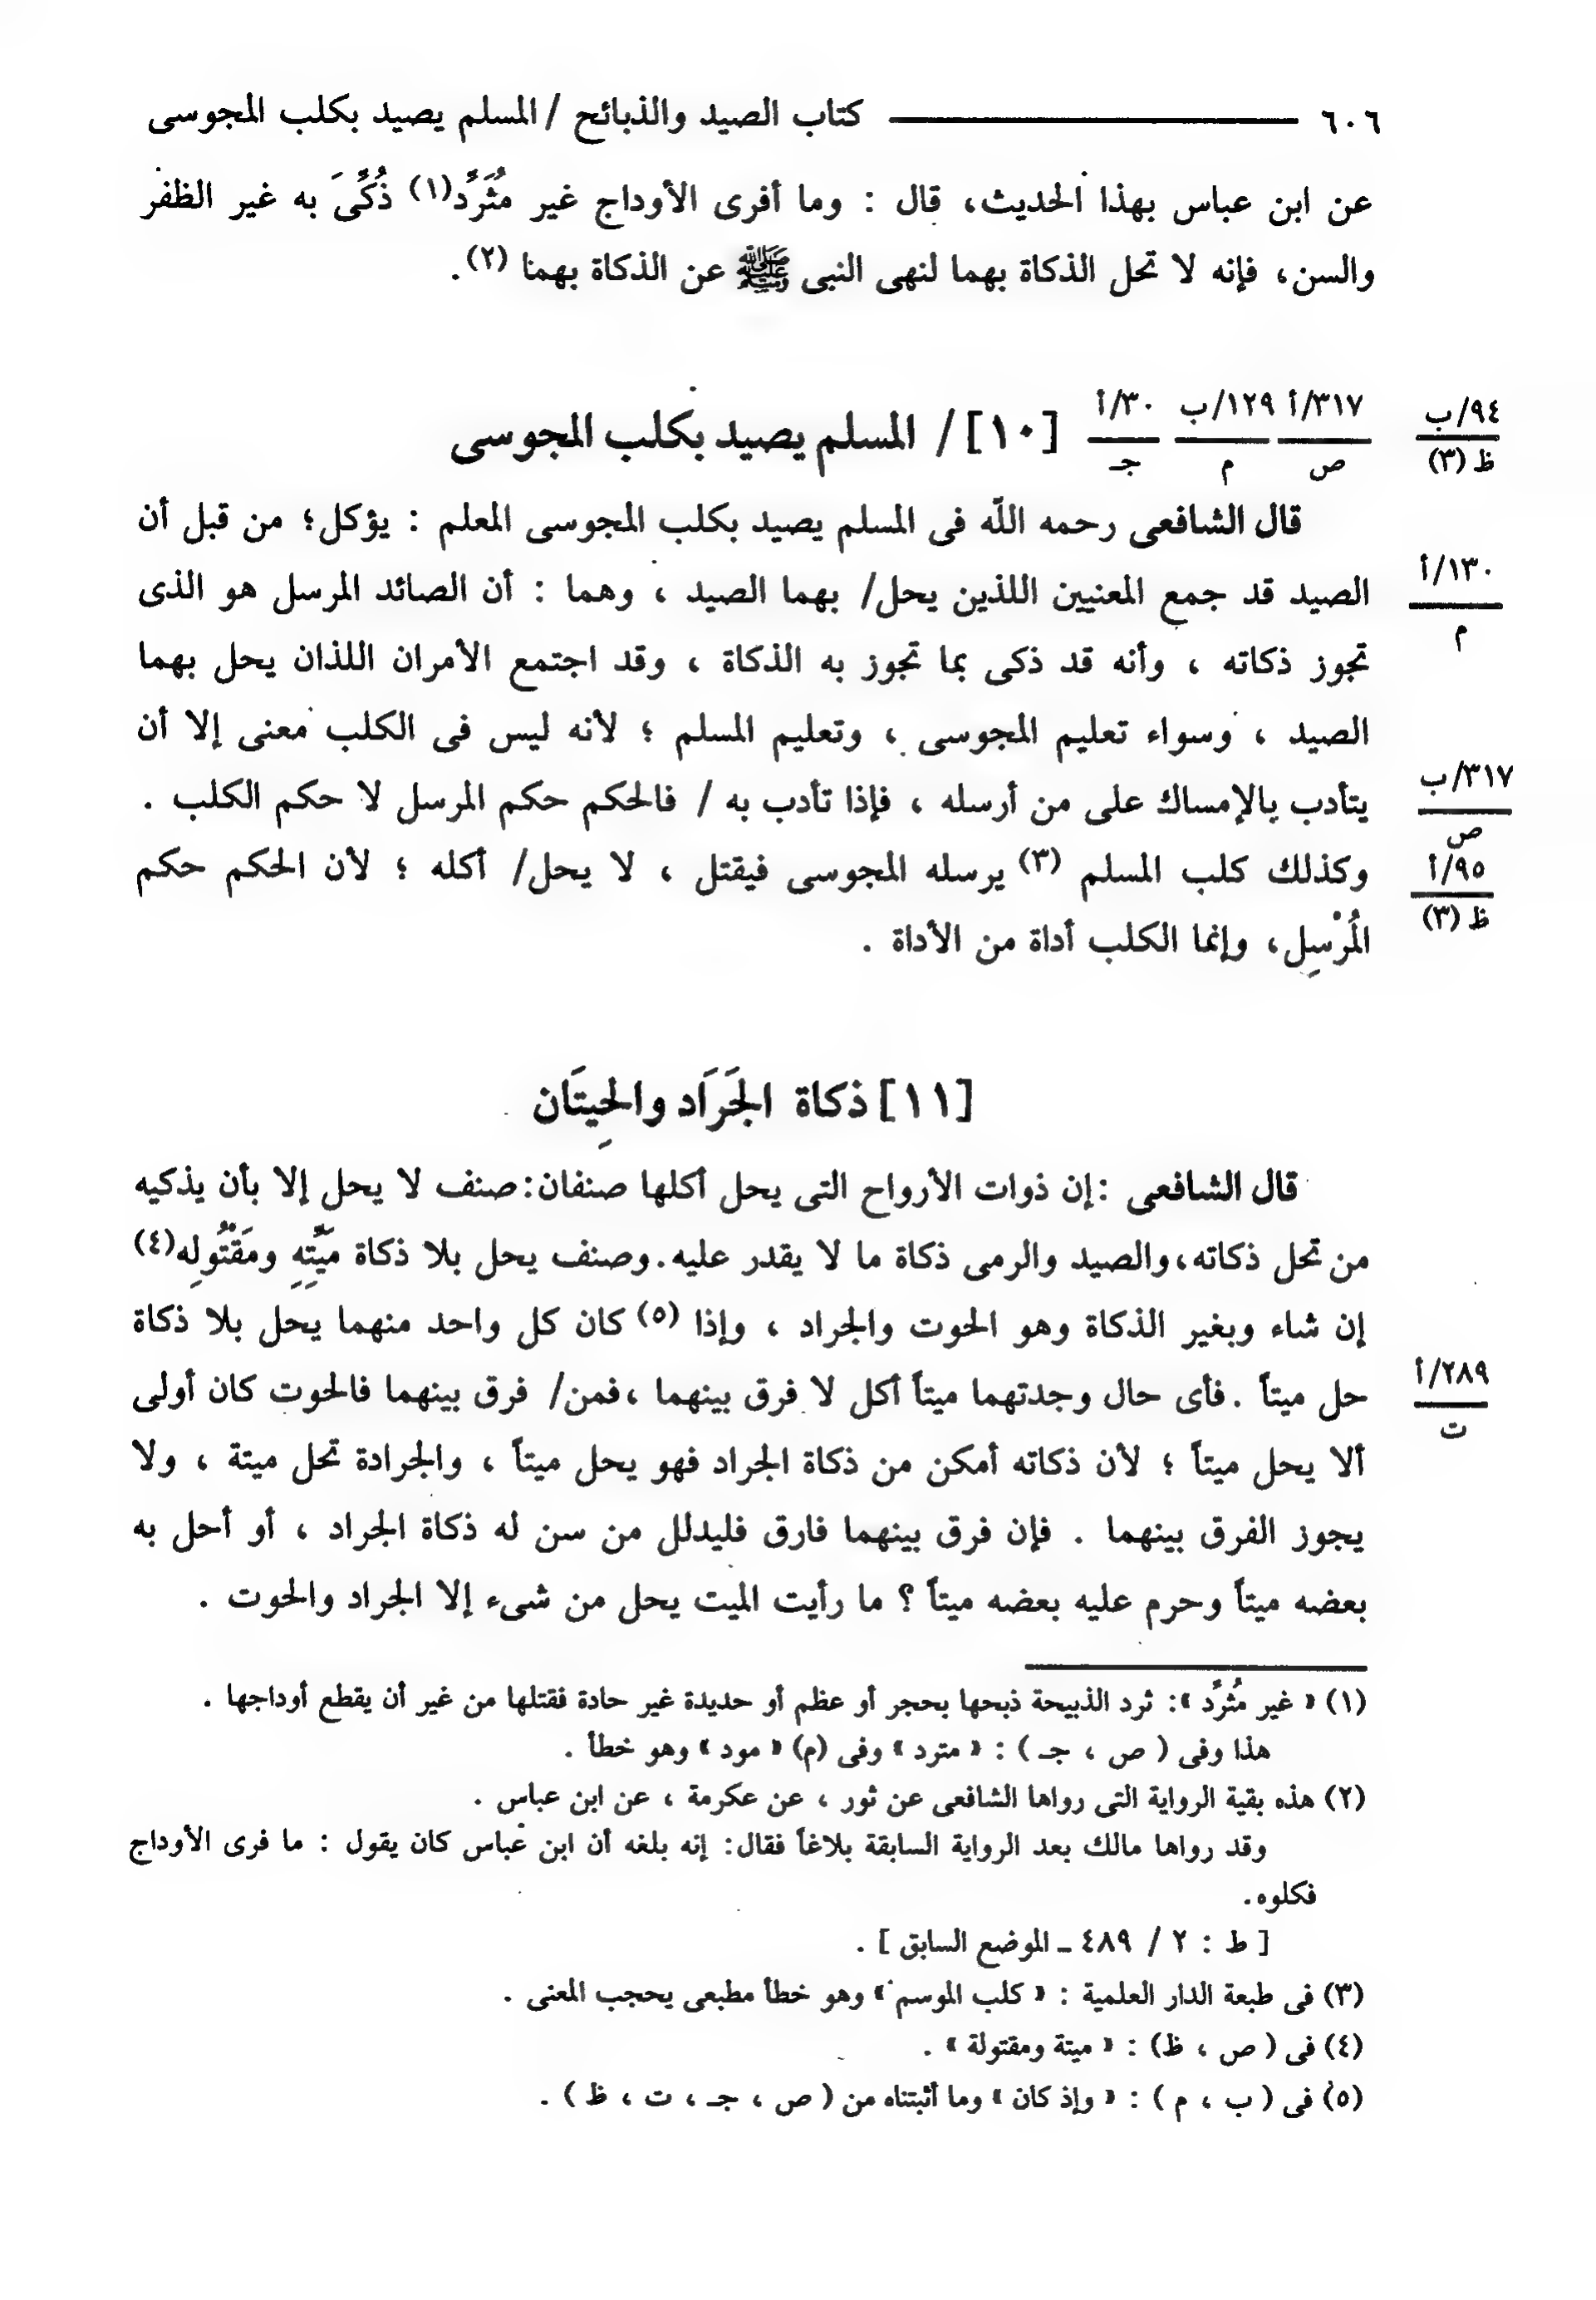 ٦٠٦ كتاب الصيد والذبائح / المسلم يصيد بكلب المجوسى
عن ابن عباس بهذا الحديث، قال : وما أفرى الأوداج غير مُثَرَّد(١) ذُكِّىَ به غير الظفر
والسن، فإنه لا تحل الذكاة بهما لنهى النبى ﷺ عن الذكاة بهما (٢).
٩٤/ب
ظ (٣)
٣١٧/أ
ص
١٢٩/ب
م
٣٠/أ
جـ
[١٠] / المسلم يصيد بكلب المجوسى
قال الشافعى رحمه اللّه فى المسلم يصيد بكلب المجوسى المعلم : يؤكل؛ من قبل أن
الصيد قد جمع المعنيين اللذين يحل/ بهما الصيد ، وهما : أن الصائد المرسل هو الذى
١٣٠/أ
م
تجوز ذكاته ، وأنه قد ذكى بما تجوز به الذكاة ، وقد اجتمع الأمران اللذان يحل بهما
الصيد ، وسواء تعليم المجوسى ، وتعليم المسلم ؛ لأنه ليس فى الكلب معنى إلا أن
يتأدب بالإمساك على من أرسله ، فإذا تأدب به / فالحكم حكم المرسل لا حكم الكلب .
٣١٧/ب
ص
وكذلك كلب المسلم (٣) يرسله المجوسى فيقتل ، لا يحل/ أكله ؛ لأن الحكم حكم
٩٥/أ
ظ (٣)
المُرْسِل، وإنما الكلب أداة من الأداة .
[١١] ذكاة الجَرَاد والحِيتَان
قال الشافعى :إن ذوات الأرواح التى يحل أكلها صنفان:صنف لا يحل إلا بأن يذكيه
من تحل ذكاته،والصيد والرمى ذكاة ما لا يقدر عليه.وصنف يحل بلا ذكاة مَيِّتِهِ ومَقْتُولِه(٤)
إن شاء وبغير الذكاة وهو الحوت والجراد ، وإذا (٥) كان كل واحد منهما يحل بلا ذكاة
حل ميتاً .فأى حال وجدتهما ميتاً أكل لا فرق بينهما ،فمن/ فرق بينهما فالحوت كان أولى
٢٨٩/أ
ت
ألا يحل ميتاً ؛ لأن ذكاته أمكن من ذكاة الجراد فهو يحل ميتاً ، والجرادة تحل ميتة ، ولا
يجوز الفرق بينهما . فإن فرق بينهما فارق فليدلل من سن له ذكاة الجراد ، أو أحل به
بعضه ميتاً وحرم عليه بعضه ميتاً ؟ ما رأيت الميت يحل من شىء إلا الجراد والحوت .
(١) « غير مُثرَّد »: ثرد الذبيحة ذبحها بحجر أو عظم أو حديدة غير حادة فقتلها من غير أن يقطع أوداجها .
هذا وفى ( ص ، جـ ) : « مترد » وفى (م) « مود » وهو خطأ .
(٢) هذه بقية الرواية التى رواها الشافعى عن ثور ، عن عكرمة ، عن ابن عباس .
وقد رواها مالك بعد الرواية السابقة بلاغاً فقال: إنه بلغه أن ابن عباس كان يقول : ما فرى الأوداج
فكلوه.
[ ط : ٢ / ٤٨٩ ـ الموضع السابق ] .
(٣) فى طبعة الدار العلمية : « كلب الموسم » وهو خطأ مطبعى يحجب المعنى .
(٤) فى ( ص ، ظ) : « ميتة ومقتولة » .
(٥) فى ( ب ، م ) : « وإذ كان » وما أثبتناه من ( ص ، جـ ، ت ، ظ ) .